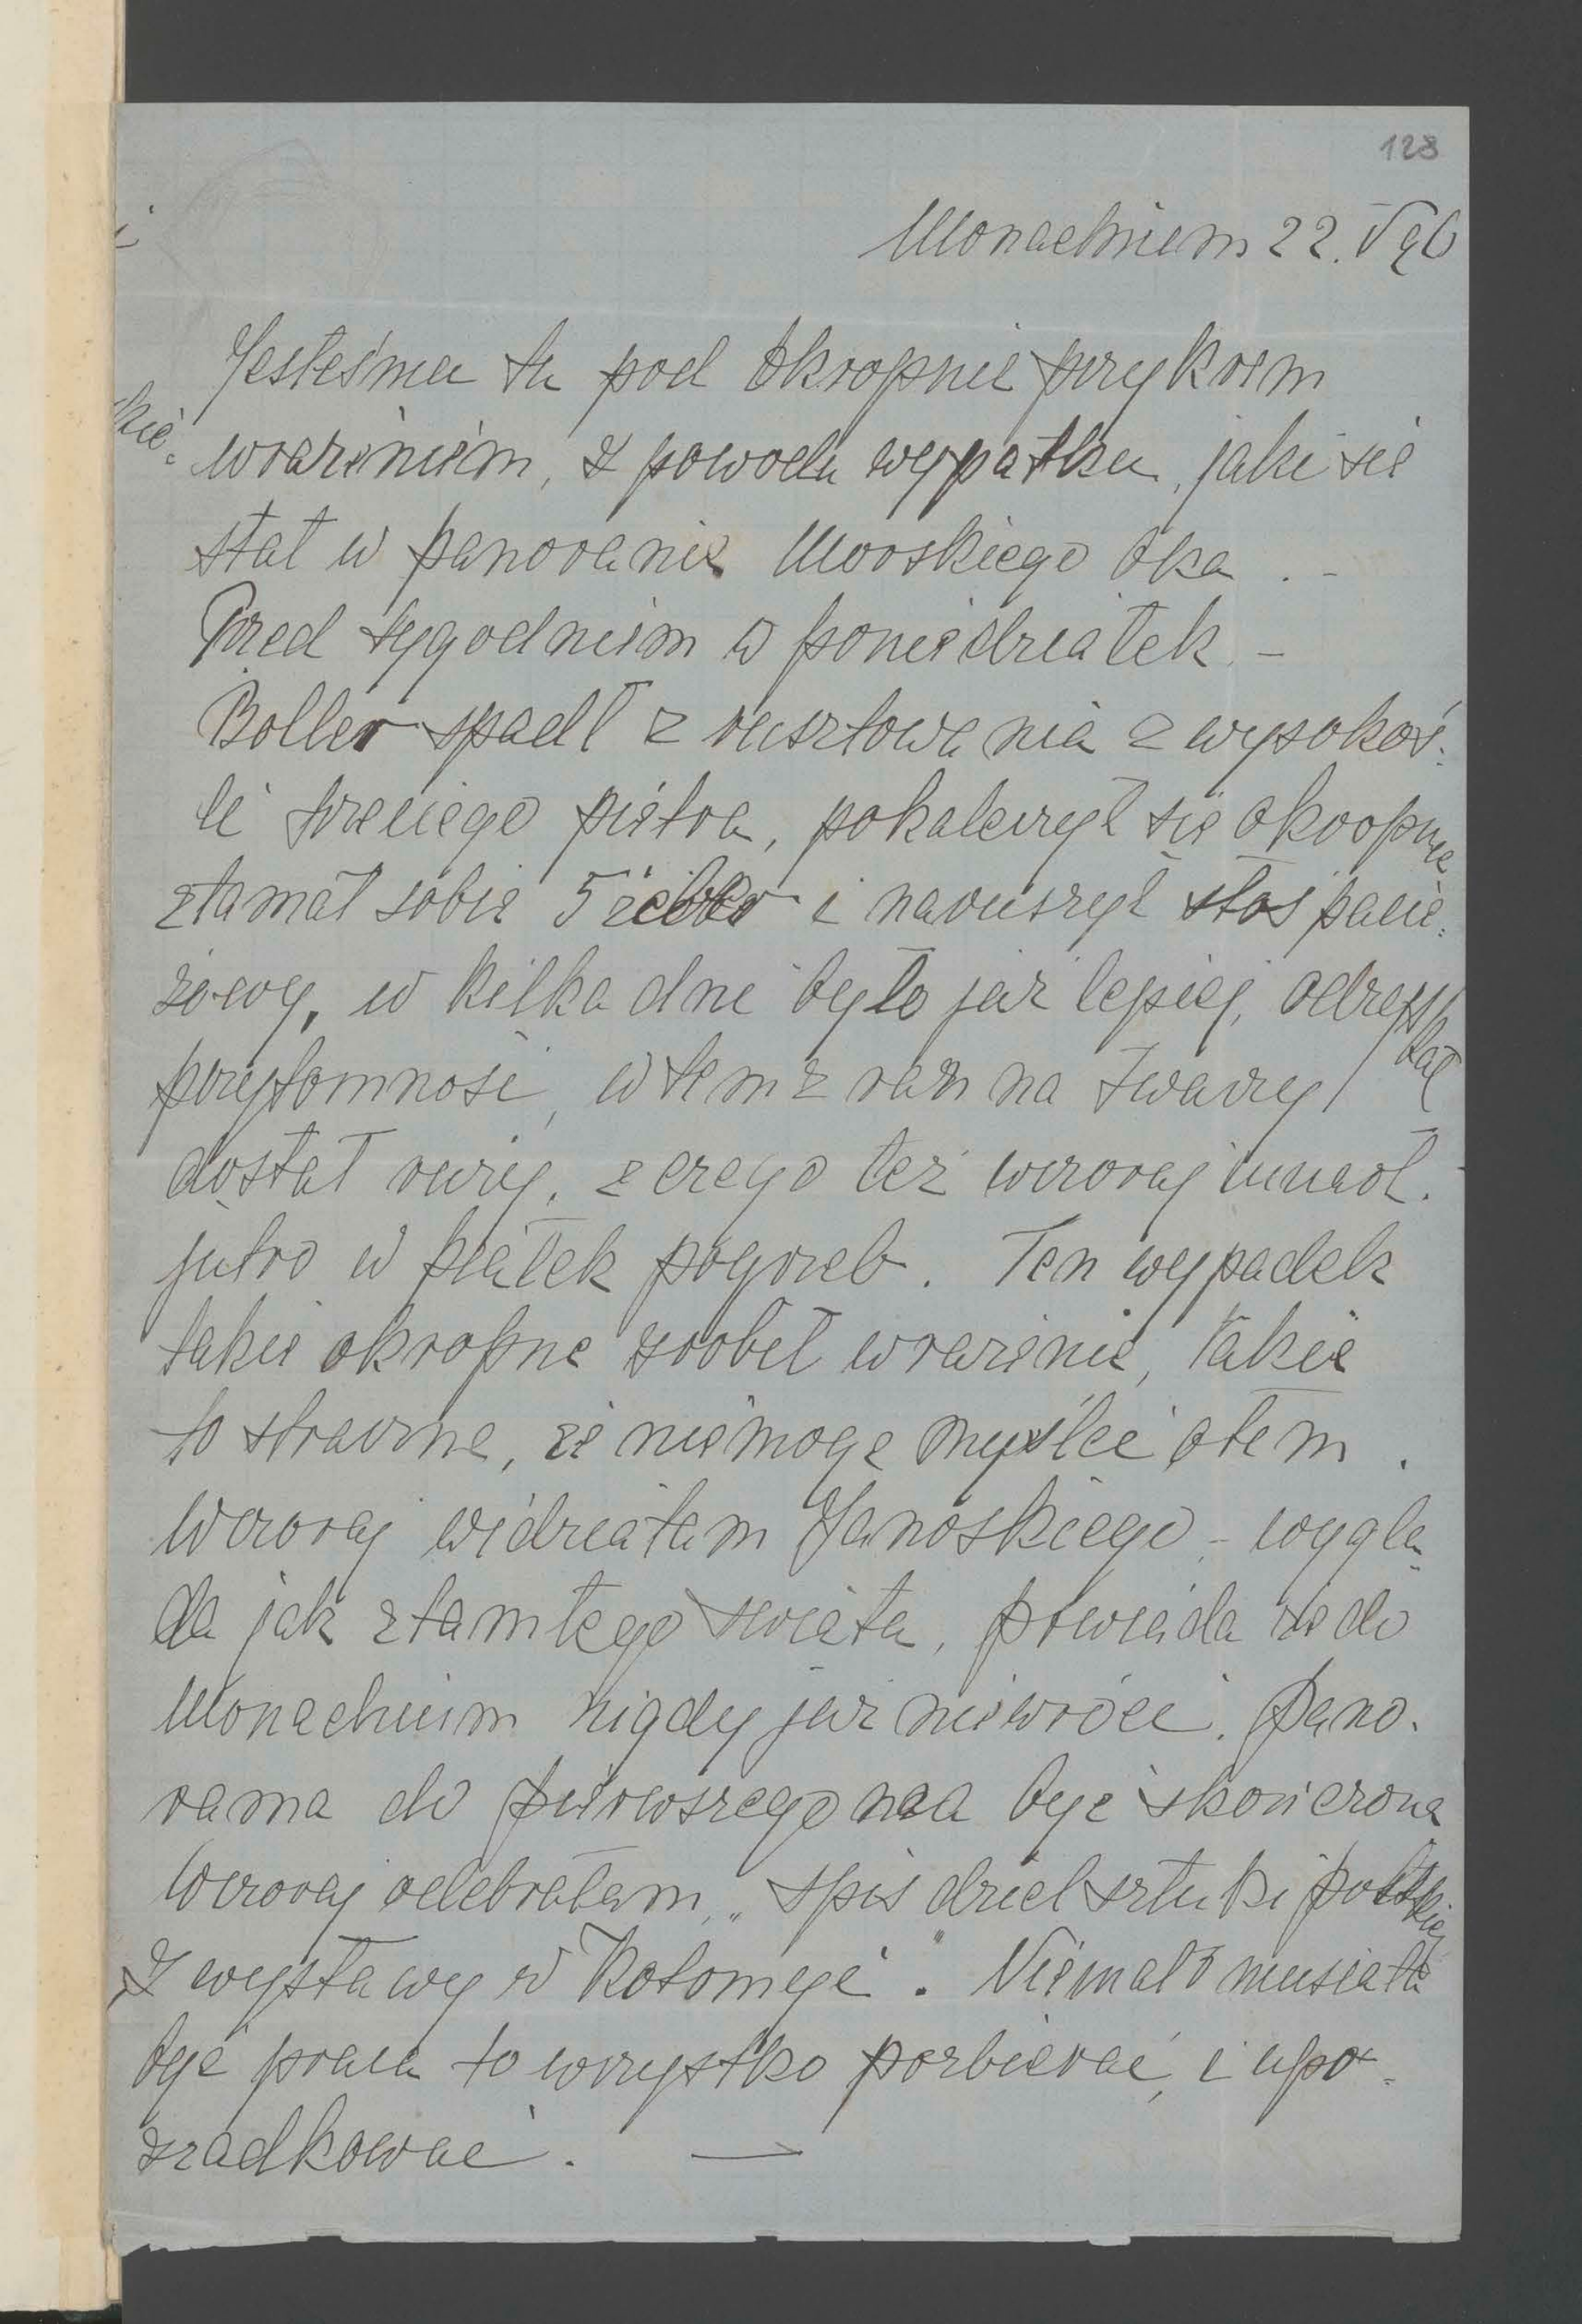 128
Monachium 22. V 96
Jesteśmy tu pod okropnie przykrem
wrażeniem, z powodu wypatku, jaki się
stał w panoramie Morskiego Oka . –
Przed tygodniem w poniedziałek –
Boller spadł z rusztowania z wysokoś:
ci trzeciego piętra, pokaleczył się okropnie
złamał sobie 5 żeber i naruszył stos pacie:
rzowy, w kilka dni było już lepiej, odzyskał
przytomność, wtem z ran na twarzy
dostał róży, z czego też wczoraj umarł.
jutro w piątek pogrzeb. Ten wypadek
takie okropne zrobił wrażenie, takie
to straszne, że niemogę myśleć otem .
Wczoraj widziałam Janoskiego – wyglą
da jak ztamtego świata, powiada że do
Monachium nigdy już niewróci. Pano.
rama do pierwszego ma być skończona
Wczoraj odebrałam „spis dzieł sztuki polskiej
z wystawy w Kołomyi". Niemało musiała
być praca to wszystko pozbierać, i upo=
rządkować. —